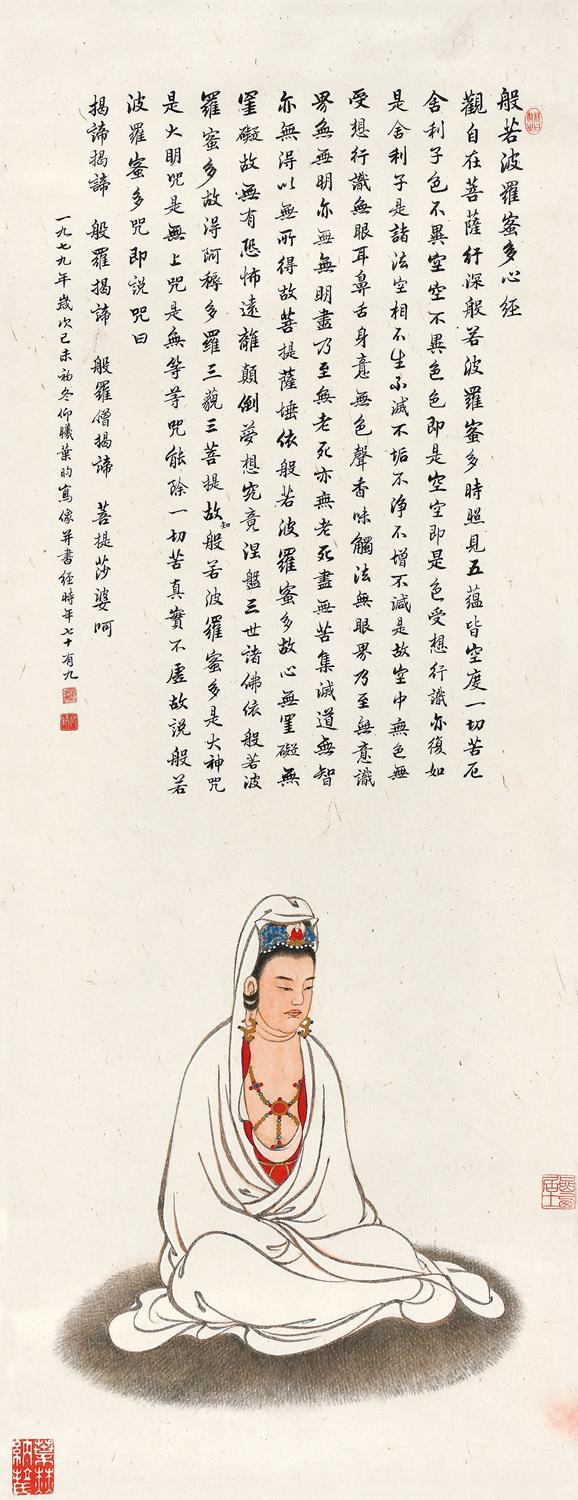 般若波羅蜜多心經
觀自在菩薩行深般若波羅蜜多時照見五蘊皆空度一切苦厄
舍利子色不異空空不異色色即是空空即是色受想行識亦復如
是舍利子是諸法空相不生不滅不垢不淨不增不減是故空中無色無
受想行識無眼耳鼻舌身意無色聲香味觸法無眼界乃至無意識
界無無明亦無無明盡乃至無老死亦無老死盡無苦集滅道無智
亦無得以無所得故菩提薩埵依般若波羅蜜多故心無罣礙無
罣礙故無有恐怖遠離顛倒夢想究竟涅盤三世諸佛依般若波
羅蜜多故得阿耨多羅三藐三菩提故知般若波羅蜜多是大神咒
是大明咒是無上咒是無等等咒能除一切苦真實不虛故説般若
波羅蜜多咒即説咒曰
揭諦揭諦 般羅揭諦 般羅僧揭諦 菩提莎婆呵
一九七九年歲次己未初冬仰曦葉昀寫像并書經時年七十有九